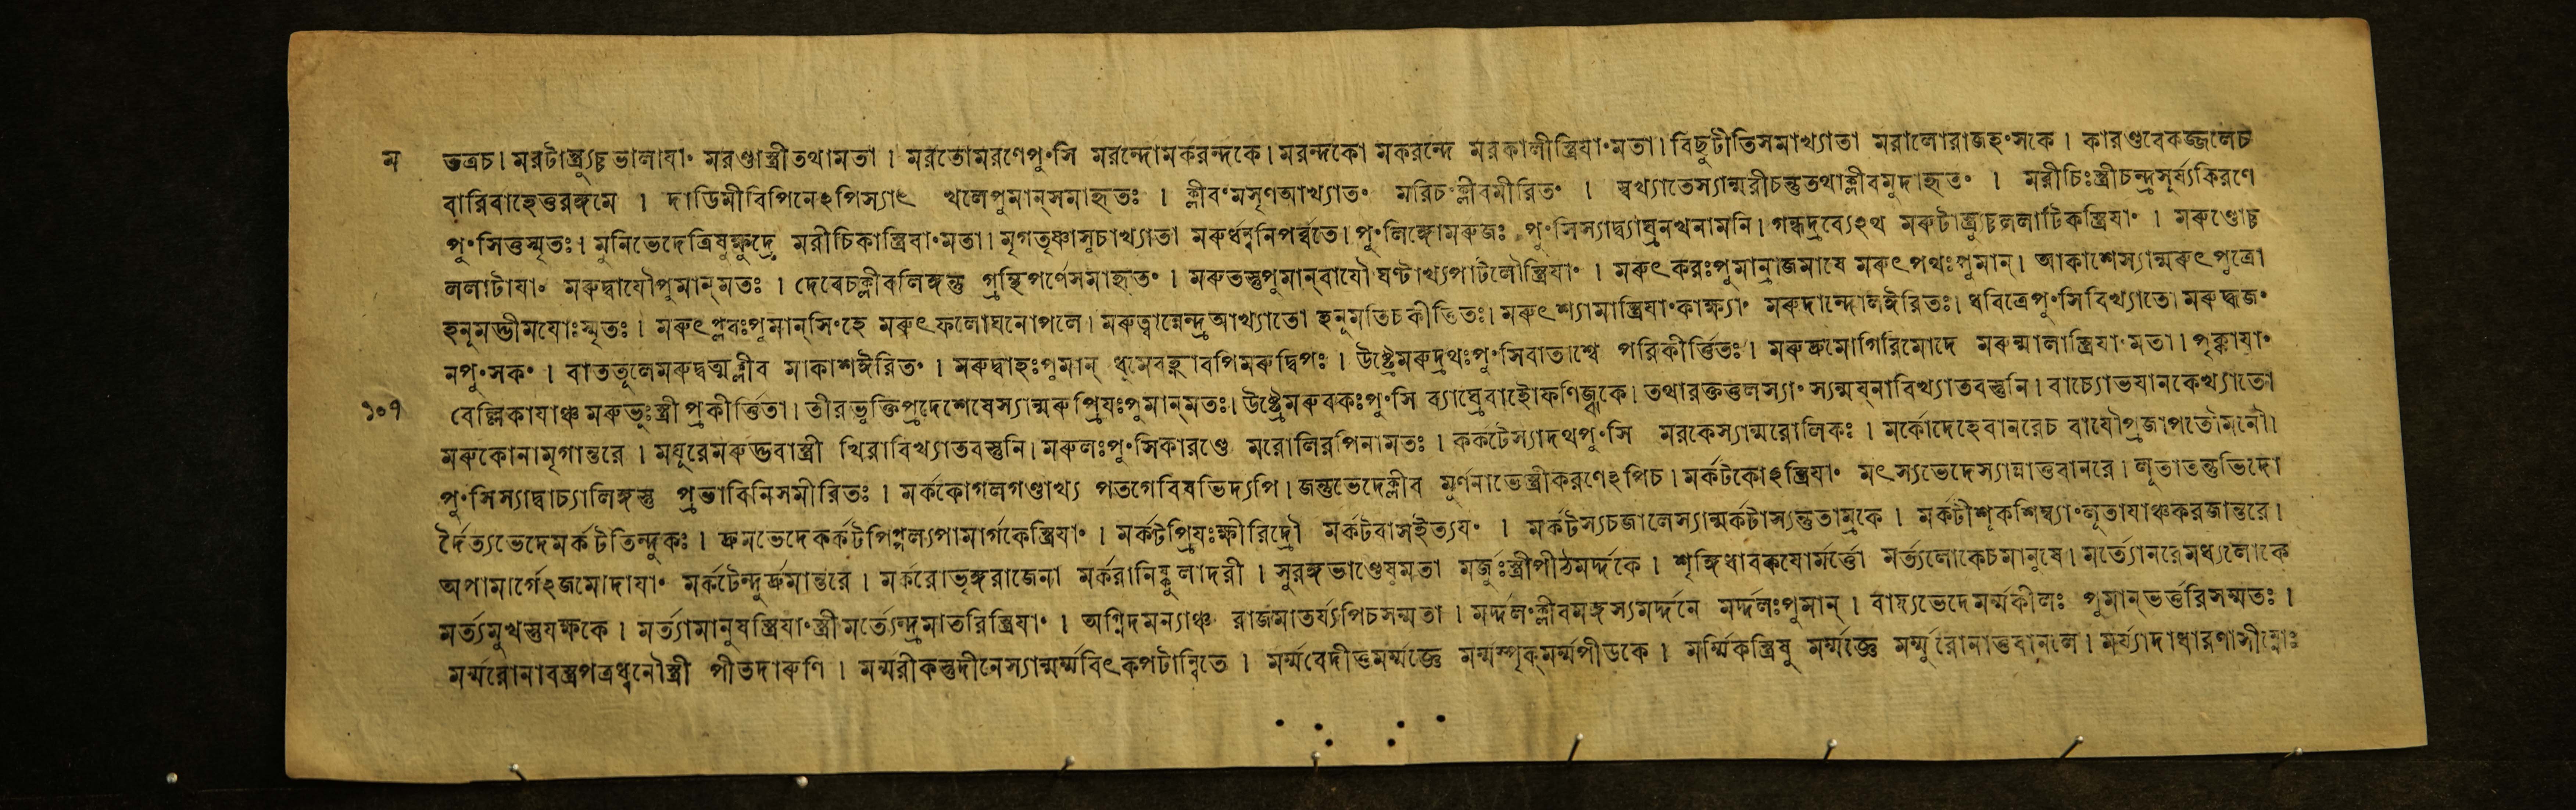 ম ভত্রচ। মরটাস্ত্র্যুচ্চভালাযা॰ মরণ্ডাস্ত্রীতথামতা। মরতোমরণেপু॰সি মরন্দোমকরন্দকে। মরন্দকো মকরন্দে মরকালীস্ত্রিযা॰মতা। বিছুটীতিসমাখ্যাতা মরালোরাজহ॰সকে। কারণ্ডবেকজ্জলেচ
বারিবাহেত্তরঙ্গমে। দাডিমীবিপিনেঽপিস্যাৎ খলেপুমান্সমাহৃতঃ। ক্লীব॰মসৃণআখ্যাত॰ মরিচ॰ক্লীবমীরিত॰। স্বখ্যাতেস্যান্মরীচন্তুতথাক্লীবমুদাহৃত॰। মরীচিঃস্ত্রীচন্দ্রসূর্য্যকিরণে
পু॰সিত্তুস্মৃতঃ। মুনিভেদেত্রিষুক্ষুদ্রে মরীচিকাস্ত্রিযা॰মতা। মৃগতৃষ্ণাসূচাখ্যাতা মরুর্ধন্বনিপর্ব্বতে। পু॰লিঙ্গোমরুজঃ পু॰সিস্যাদ্ব্যাঘ্রনখনামনি। গন্ধদ্রব্যেঽথ মরুটাস্ত্র্যুচললাটিকস্ত্রিযা॰। মরুণ্ডোচ্চ
ললাটাযা॰ মরুদ্বাযৌপুমান্মতঃ। দেবেচক্লীবলিঙ্গন্তু গ্রন্থিপর্ণেসমাহৃত॰। মরুতস্তুপুমান্বাযৌ ঘণ্টাখ্যপাটলৌস্ত্রিযা॰। মরুৎকরঃপুমান্রাজমাষে মরুৎপথঃপুমান্। আকাশেস্যান্মরুৎপুত্রো
হনুমদ্ভীমযোঃস্মৃতঃ। মরুৎপ্লবঃপুমান্সি॰হে মরুৎফলোঘনোপলে। মরুত্বান্নেন্দ্রআখ্যাতো হনুমতিচকীর্ত্তিতঃ। মরুৎশ্যামাস্ত্রিযা॰কাক্ষ্যা॰ মরুদান্দোলঈরিতঃ। ধবিত্রেপু॰সিবিখ্যাতো মরুদ্ধজ॰
নপু॰সক॰। বাততূলেমরুদ্বর্ত্মক্লীব মাকাশঈরিত॰। মরুদ্বাহঃপুমান্ ধূমেবহ্নাবপিমরুদ্বিপঃ। উষ্ট্রেমরুদ্রথঃপু॰সিবাতাশ্বে পরিকীর্ত্তিতঃ। মরুদ্রুমোগিরিমোদে মরুন্মালাস্ত্রিযা॰মতা। পৃক্কাযা॰
১০৭ বেল্লিকাযাঞ্চ মরুভুঃস্ত্রী প্রকীর্ত্তিতা। তীরভুক্তিপ্রদেশেষেস্যান্মরুপ্রিযঃপুমান্মতঃ। উষ্ট্রেমরুবকঃপু॰সি ব্যাঘ্রেবাহৌফণিজ্ঝকে। তথারক্ততুলস্যা॰ স্যন্মযনাবিখ্যাতবস্তুনি। বাচ্যোভযানকেখ্যাতো
মরুকোনামৃগান্তরে। মযূরেমরুদ্ভবাস্ত্রী খিরাবিখ্যাতবস্তুনি। মরুলঃপু॰সিকারণ্ডে মরোলিরপিনামতঃ। কর্কটেস্যাদথপু॰সি মরকেস্যান্মরোলিকঃ। মর্কোদেহেবানরেচ বাযৌপ্রজাপতৌমনৌ।
পু॰সিস্যাদ্বাচ্যালিঙ্গন্তু প্রভাবিনিসমীরিতঃ। মর্ককোগলগণ্ডাখ্য পতগেবিষভিদ্যপি। জন্তুভেদেক্লীব মুর্ণনাভেস্ত্রীকরণেঽপিচ। মর্কটকোঽস্ত্রিযা॰ মৎস্যভেদেস্যান্নাত্তবানরে। লূতাতন্তুভিদো
র্দৈত্যভেদেমর্কটতিন্দুকঃ। দ্রুমভেদেকর্কটপিপ্পল্যপামার্গকেস্ত্রিযা॰। মর্কটপ্রিযঃক্ষীরিদ্রৌ মর্কটবাসইত্যয॰। মর্কটস্যচজালেস্যান্মর্কটাস্যন্তুতাম্রকে। মর্কটীশূকশিম্ব্যা॰লূতাযাঞ্চকরজান্তরে।
অপামার্গেঽজমোদাযা॰ মর্কটেন্দুর্দ্রুমান্তরে। মর্করোভৃঙ্গরাজেনা মর্করানিষ্কুলাদরী। সুরঙ্গভাণ্ডেষুমতা মর্জুঃস্ত্রীপীঠমর্দ্দকে। শৃঙ্গিধাবকযোর্মর্ত্তো মর্ত্যলোকেচমানুষে। মর্ত্যোনরেমধ্যলোকে
মর্ত্যমুখস্তুযক্ষকে। মর্ত্যামানুষস্ত্রিযা॰স্ত্রী মর্ত্যেন্দ্রমাতরিস্ত্রিযা॰। অগ্নিদমন্যাঞ্চ রাজমাতর্য্যপিচসম্মতা। মর্দ্দল॰ক্লীবমঙ্গস্যমর্দ্দনে মর্দ্দলঃপুমান্। বাদ্যভেদেমর্ম্মকীলঃ পুমান্ভর্ত্তরিসম্মতঃ।
মর্ম্মরোনাবস্ত্রপত্রধ্বনৌস্ত্রী পীতদারুণি। মর্ম্মরীকস্তুদীনেস্যান্মর্ম্মবিৎকপটান্বিতে। মর্ম্মবেদীত্তমর্ম্মজ্ঞে মর্ম্মস্পৃক্মর্ম্মপীডকে। মর্ম্মিকস্ত্রিষু মর্ম্মজ্ঞে মর্ম্মুরোনাত্তবানলে। মর্য্যাদাধারণাসীম্নোঃ